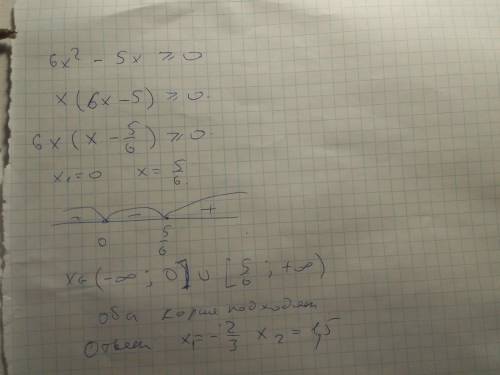 6x² - 5x ≥ 0
x(6x - 5) ≥ 0.
6x(x - 5/6) ≥ 0.
x₁ = 0 x = 5/6.
+ - +
0 5/6
x ∈ (-∞; 0] ∪ [5/6; +∞)
Оба корня подходят
Ответ x₁ = -2/3 x₂ = 1,5